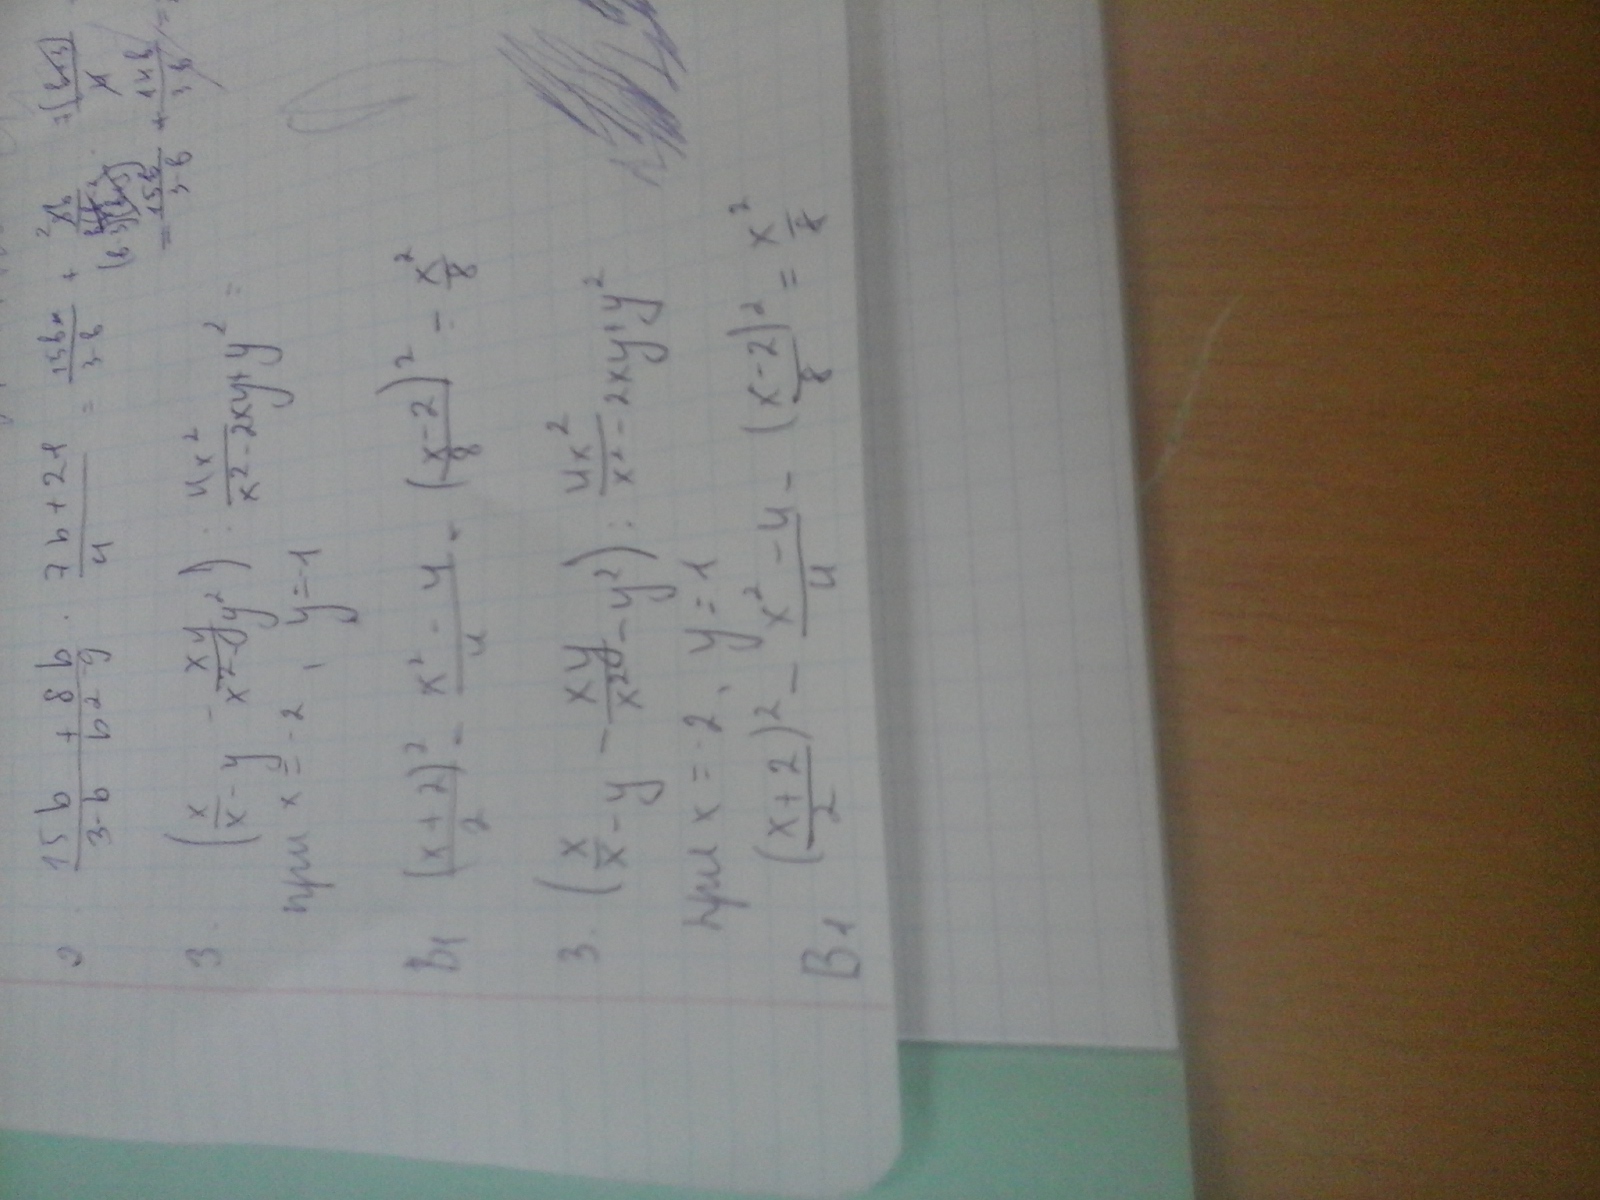 2 15b/3-b + 8b/b2-9 · 7b+21/4 = 15b/3-b +
= 15b/3-b + 14b/3-b =
3. (x/x-y - xy/x²-y²) : 4x²/x²-2xy+y² =
при x=-2, y=-1
B1 (x+2)²/2 - x²-4/4 - (x-2)²/8 = x²/8
3. (x/x-y - xy/x²-y²) : 4x²/x²-2xy+y²
при x=-2, y=1
B1 (x+2)²/2 - x²-4/4 - (x-2)²/8 = x²/8